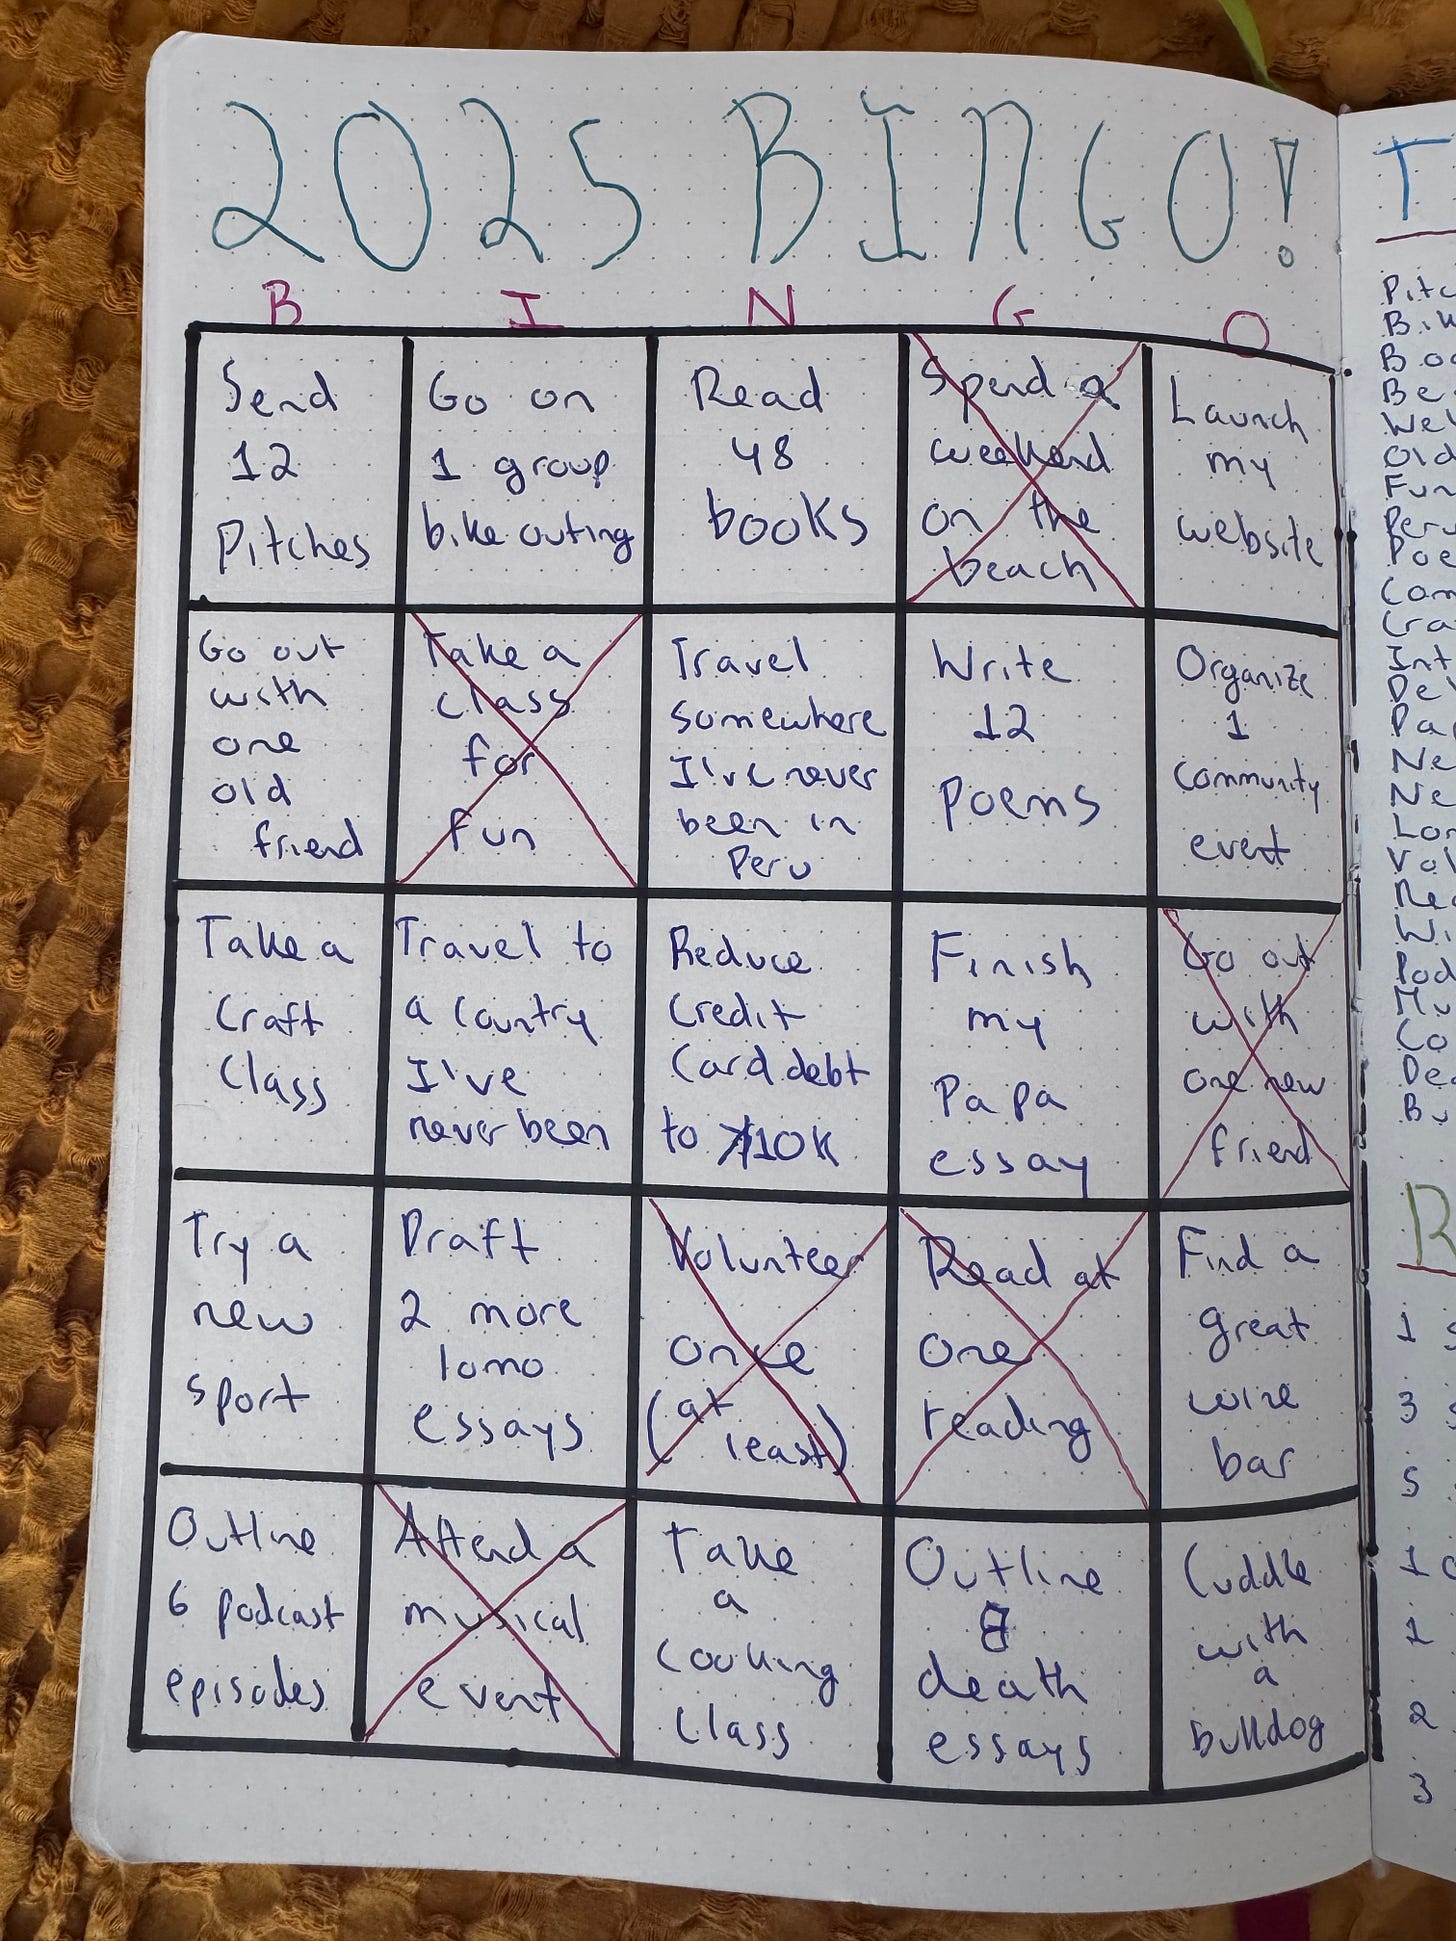 2025 BINGO!
B I N G O
Send
12
Pitches
Go on
1 group
bike outing
Read
48
books
Spend a
weekend
on the
beach
Launch
my
website
Go out
with
one
old
friend
Take a
class
for
fun
Travel
somewhere
I've never
been in
Peru
Write
12
poems
Organize
1
community
event
Take a
Craft
Class
Travel to
a country
I've
never been
Reduce
Credit
Card debt
to $10K
Finish
my
Papa
essay
Go out
with
one new
friend
Try a
new
sport
Draft
2 more
lomo
essays
Volunteer
once
(at
least)
Read at
one
reading
Find a
great
wine
bar
Outline
6 podcast
episodes
Attend a
musical
event
Take
a
Cooking
Class
Outline
8
death
essays
Cuddle
with
a
bulldog
T
R
1
3
5
1
1
2
3